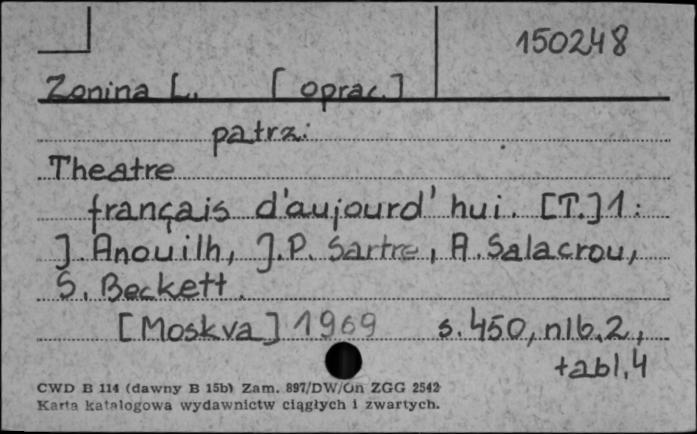 150248
Zonina L. [oprac.]
patrz:
Theatre
français d'aujourd'hui. [T.]1:
J. Anouilh, J.P. Sartre, A. Salacrou,
S. Beckett.
[Moskva] 1969 s. 450, nlb. 2,
tabl. 4
CWD B 114 (dawny B 15b) Zam. 897/DW/On ZGG 2542
Karta katalogowa wydawnictw ciągłych i zwartych.